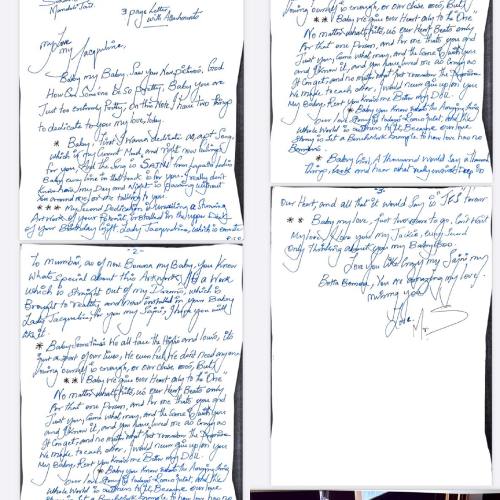 Mandoli Jail
3 page Letter
with Attachments
My Love
my Jacqueline,
Baby my Baby, Saw You New pictures, Good
How Can Someone be So pretty, Baby You are
Just too Extremely Pretty, on this Note, I have two things
to dedicate to you my love, today.
* Baby, First I wanna dedicate an apt Song,
which is my Current Mood, and right now
for You, the Song is
Baby every line in that Song is for you, I really don't
Know how my Day and Night is without
You around me, or me talking to you
*** My Second Dedication is Unveiling a Stunning
Artwork of Your Portrait, installed in the upper Deck
of Your Birthday Gift, Lady Jacqueline, which is
P.T.O.
"2"
To mumbai, as of now Bomma my Baby, You Know
Whats Special about this Artwork, Its a Work
Which is Straight out of my Dreams, which is
Brought to reality, and Now installed in Your Baby
Lady Jacqueline, for you my I Hope you will
like it.
* Baby Sometimes We all face the Highs and lows, its
Just a part of our lives, We even feel We don't need anyone
loving ourself is enough, or our Chase ends, But
** Baby We give our Heart only to the "One"
No matter What life, is our Heart Beats only
For that one Person, and for me thats you and
Just You, Come what may, and the Same with you
and I Know it, and You have loved me as Crazy as
It Can get, and no matter what Just remember the
We made to each other, I would never give up on You
My Baby, Rest You Know me Better my Doll.
* Baby You Know whats the Amazing thing,
our Love Story is todays Romeo Juliet, And the
Whole World is witness to it, Because our love
Story is Set a Benchmark Example to how love has no
loving ourself is enough, or our Chase ends, But
** Baby We give our Heart only to the "One"
No matter What life, is our Heart Beats only
For that one Person, and for me thats you and
Just You, Come what may, and the Same with you
and I Know it, and You have loved me as Crazy as
It Can get, and no matter what Just remember the
We made to each other, I would never give up on You
My Baby, Rest You Know me Better my Doll.
* Baby You Know whats the Amazing thing,
our Love Story is todays Romeo Juliet, And the
Whole World is witness to it, Because our love
Story is Set a Benchmark Example to how love has no
* Baby Girl, A thousand Would Say a thousand
things, look and hear what really matters is
"3"
Our Heart, and all that It would Say is "YES" Forever
** Baby my love, Just two days to go, Can't Wait
My love, I Love you my Jackie, every Second
Only Thinking about you my Babyboo.
Love You like Crazy my
Botta Bomma, You are Amazing my love
missing you
Love